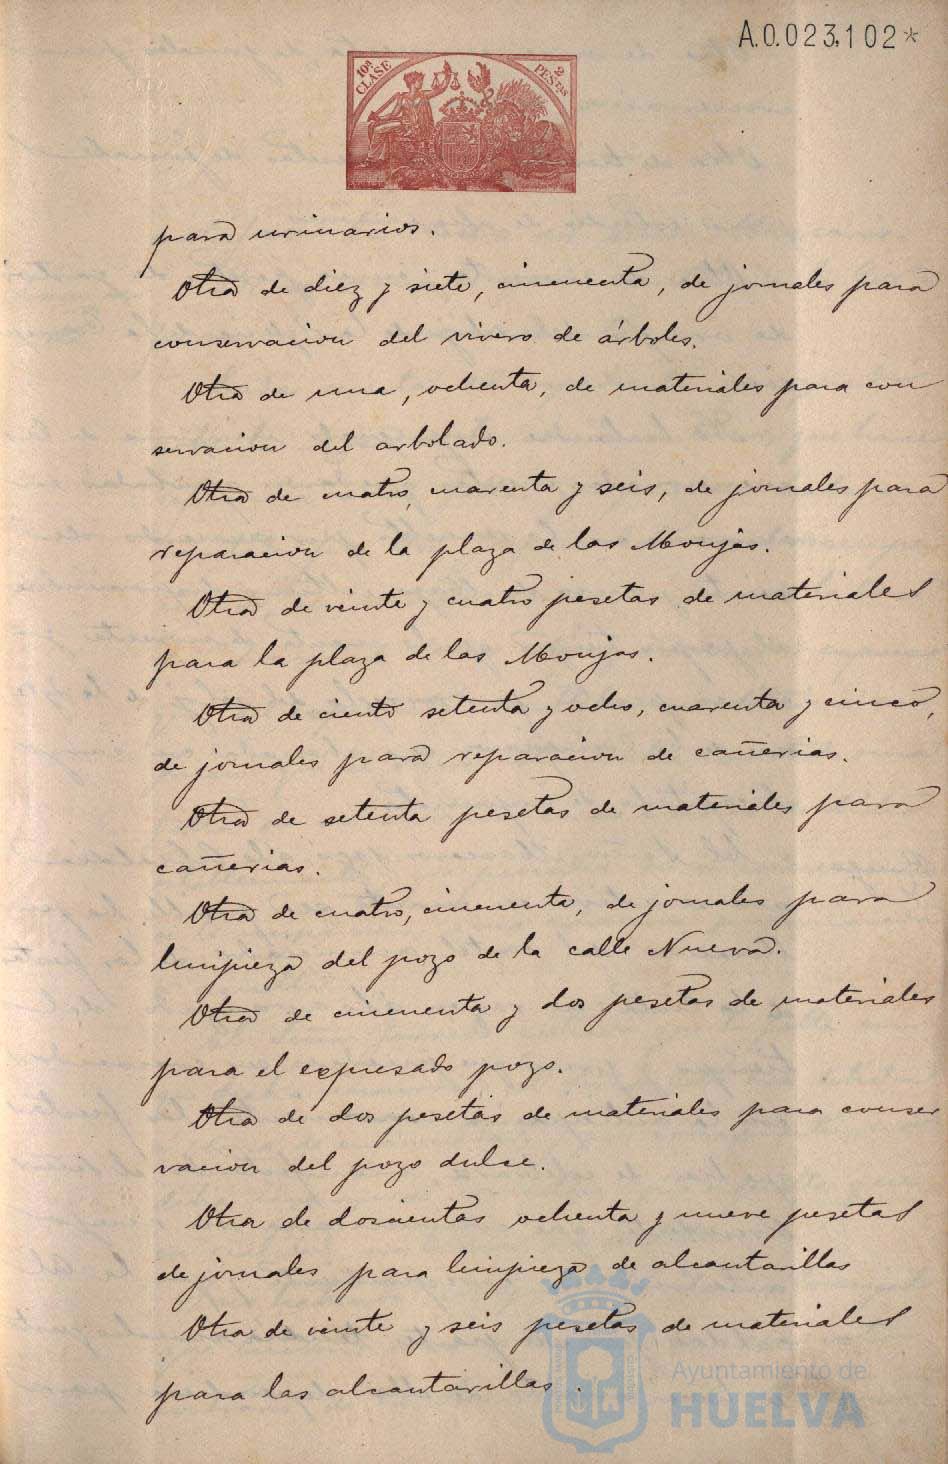 A.0.023,102*
10ª CLASE
2 PESTAS
para urinarios.
Otra de diez y siete, cincuenta, de jornales para
conservacion del vivero de árboles.
Otra de una, ochenta, de materiales para con
servacion del arbolado.
Otra de cuatro, cuarenta y seis, de jornales para
reparacion de la plaza de las Monjas.
Otra de veinte y cuatro pesetas de materiales
para la plaza de las Monjas.
Otra de ciento setenta y ocho, cuarenta y cinco,
de jornales para reparacion de cañerias.
Otra de setenta pesetas de materiales para
cañerias.
Otra de cuatro, cincuenta, de jornales para
limpieza del pozo de la calle Nueva.
Otra de cincuenta y dos pesetas de materiales
para el expresado pozo.
Otra de dos pesetas de materiales para conser
vacion del pozo dulce.
Otra de doscientas ochenta y nueve pesetas
de jornales para limpieza de alcantarillas
Otra de veinte y seis pesetas de materiales
para las alcantarillas.
Ayuntamiento de
HUELVA